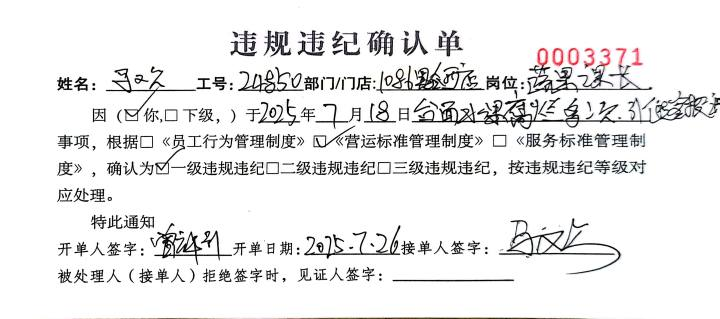 违规违纪确认单
0003371
姓名：马文 工号：24850 部门/门店：1086 店 岗位：蔬果课长
因（☑你，□下级，）于2025年7月18日台面水课腐烂 次
事项，根据□《员工行为管理制度》☑《营运标准管理制度》□《服务标准管理制
度》，确认为☑一级违规违纪□二级违规违纪□三级违规违纪，按违规违纪等级对
应处理。
特此通知
开单人签字： 开单日期：2025-7-26 接单人签字：马文
被处理人（接单人）拒绝签字时，见证人签字：